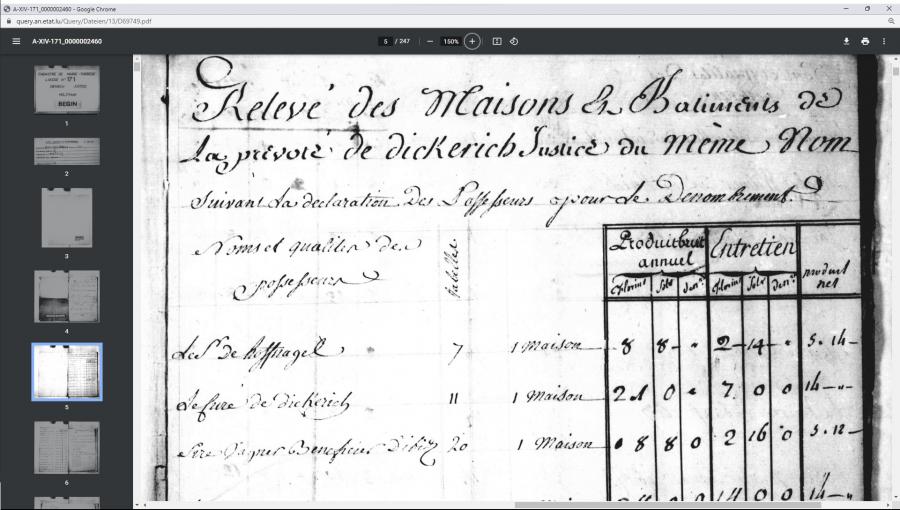 A-XIV-171_0000002460 - Google Chrome
query.an.etat.lu/Query/Dateien/13/D69749.pdf
A-XIV-171_0000002460
5 / 247
150%
CADASTRE DE MARIE-THERESE
BEGIN
1
2
3
4
5
6
Relevé des Maisons & Batiments de
La prevoté de dickerich Justice du Même Nom
Suivant La declaration Des Possesseurs pour Le Denombrement.
Noms et qualités des
possesseurs
Produit brut
annuel
Entretien
produit
net
Florins Sols Den.rs Florins Sols Den.rs
Le Sr de 7 1 Maison 8 8 - " 2 - 14 - " 5 . 14 -
Le Curé de dickerich 11 1 Maison 21 0 " 7 0 0 14 - " -
20 1 Maison 8 8 0 2 16 0 5 . 12 -